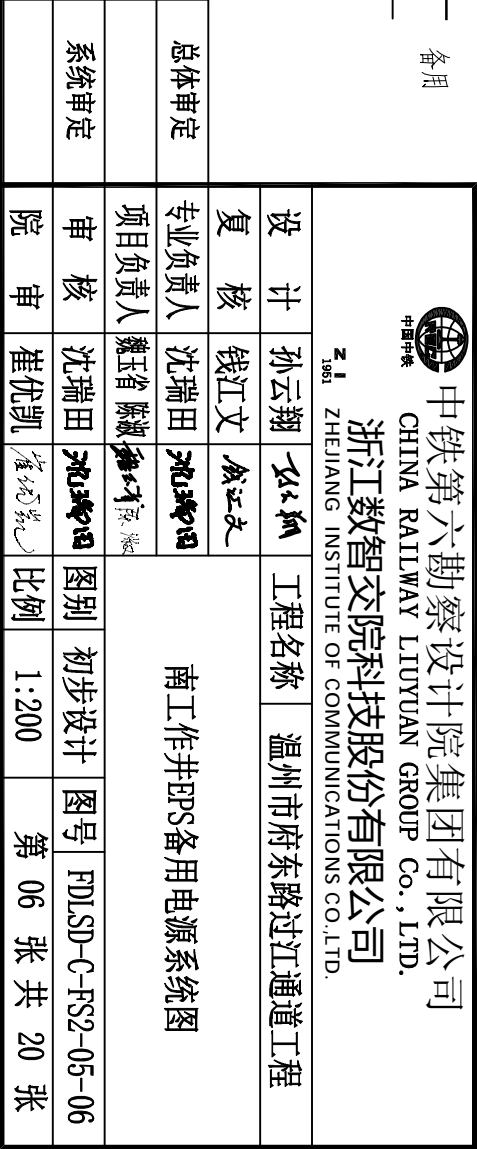 备用
中国中铁
中铁第六勘察设计院集团有限公司
CHINA RAILWAY LIUYUAN GROUP Co.,LTD.
1951
浙江数智交院科技股份有限公司
ZHEJIANG INSTITUTE OF COMMUNICATIONS CO.,LTD.
设 计 孙云翔 孙云翔 工程名称 温州市府东路过江通道工程
复 核 钱江文 钱江文
总体审定 专业负责人 沈瑞田 沈瑞田 南工作井EPS备用电源系统图
项目负责人 魏玉省 陈淑 魏玉省 陈淑
系统审定 审 核 沈瑞田 沈瑞田 图别 初步设计 图号 FDLSD-C-FS2-05-06
院 审 崔优凯 崔优凯 比例 1:200 第 06 张 共 20 张